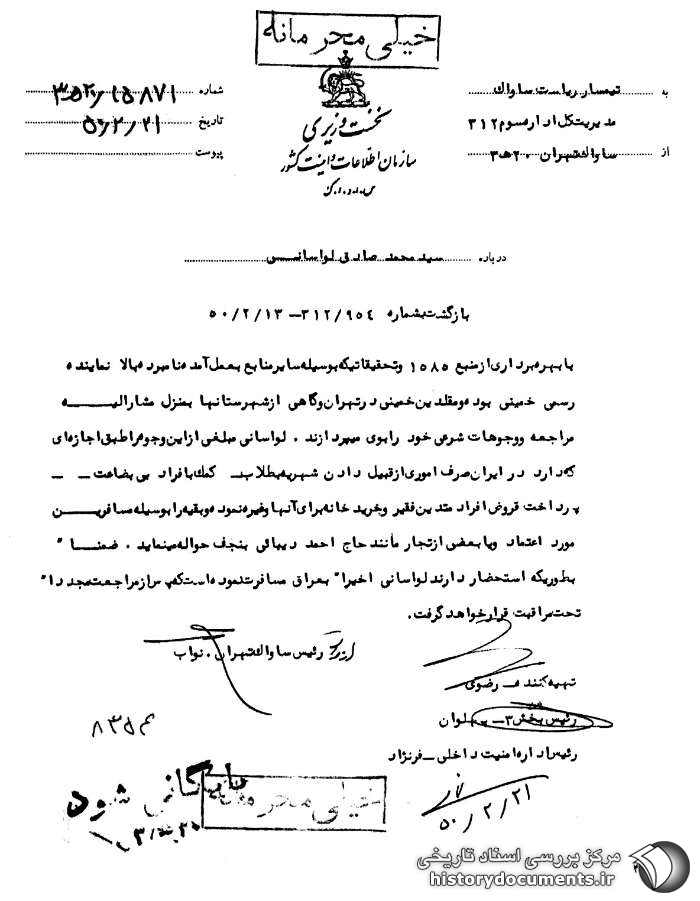 خیلی محرمانه
به تیمسار ریاست ساواک
مدیریت کل اداره سوم ۳۱۲
از ساواک تهران ۲۰ ه ۳
نخست وزیری
سازمان اطلاعات و امنیت کشور
س.ا.و.ا.ک
شماره ۱۵۸۷۱/
تاریخ ۵۰/۲/۲۱
پیوست
درباره سید محمد صادق لواسانی
بازگشت بشماره ۳۱۲/۹۵۴ – ۵۰/۲/۱۳
با بهره برداری از منبع ۱۵۸۵ و تحقیقاتیکه بوسیله سایر منابع بعمل آمده نامبرده بالا نماینده
رسمی خمینی بوده و مقلدین خمینی در تهران و گاهی از شهرستانها بمنزل مشارالیه
مراجعه و وجوهات شرعی خود را بوی میپردازند . لواسانی مبلغی از این وجوه را طبق اجازه ای
که دارد در ایران صرف اموری از قبیل دادن شهریه بطلاب – کمک بافراد بی بضاعت – –
پرداخت قروض افراد متدین فقیر و خرید خانه برای آنها و غیره نموده و بقیه را بوسیله مسافرین
مورد اعتماد و یا بعضی از تجار مانند حاج احمد دیبائی بنجف حواله مینماید . ضمنا "
بطوریکه استحضار دارند لواسانی اخیرا" بعراق مسافرت نموده است که پس از مراجعت مجددا"
تحت مراقبت قرار خواهد گرفت.
رئیس ساواک تهران . نواب
تهیه کننده – رضوی
رئیس بخش ۳ – پهلوان
رئیس اداره امنیت داخلی – فرنژاد
۵۰/۲/۲۱
بایگانی شود
خیلی محرمانه
مرکز بررسی اسناد تاریخی
historydocuments.ir